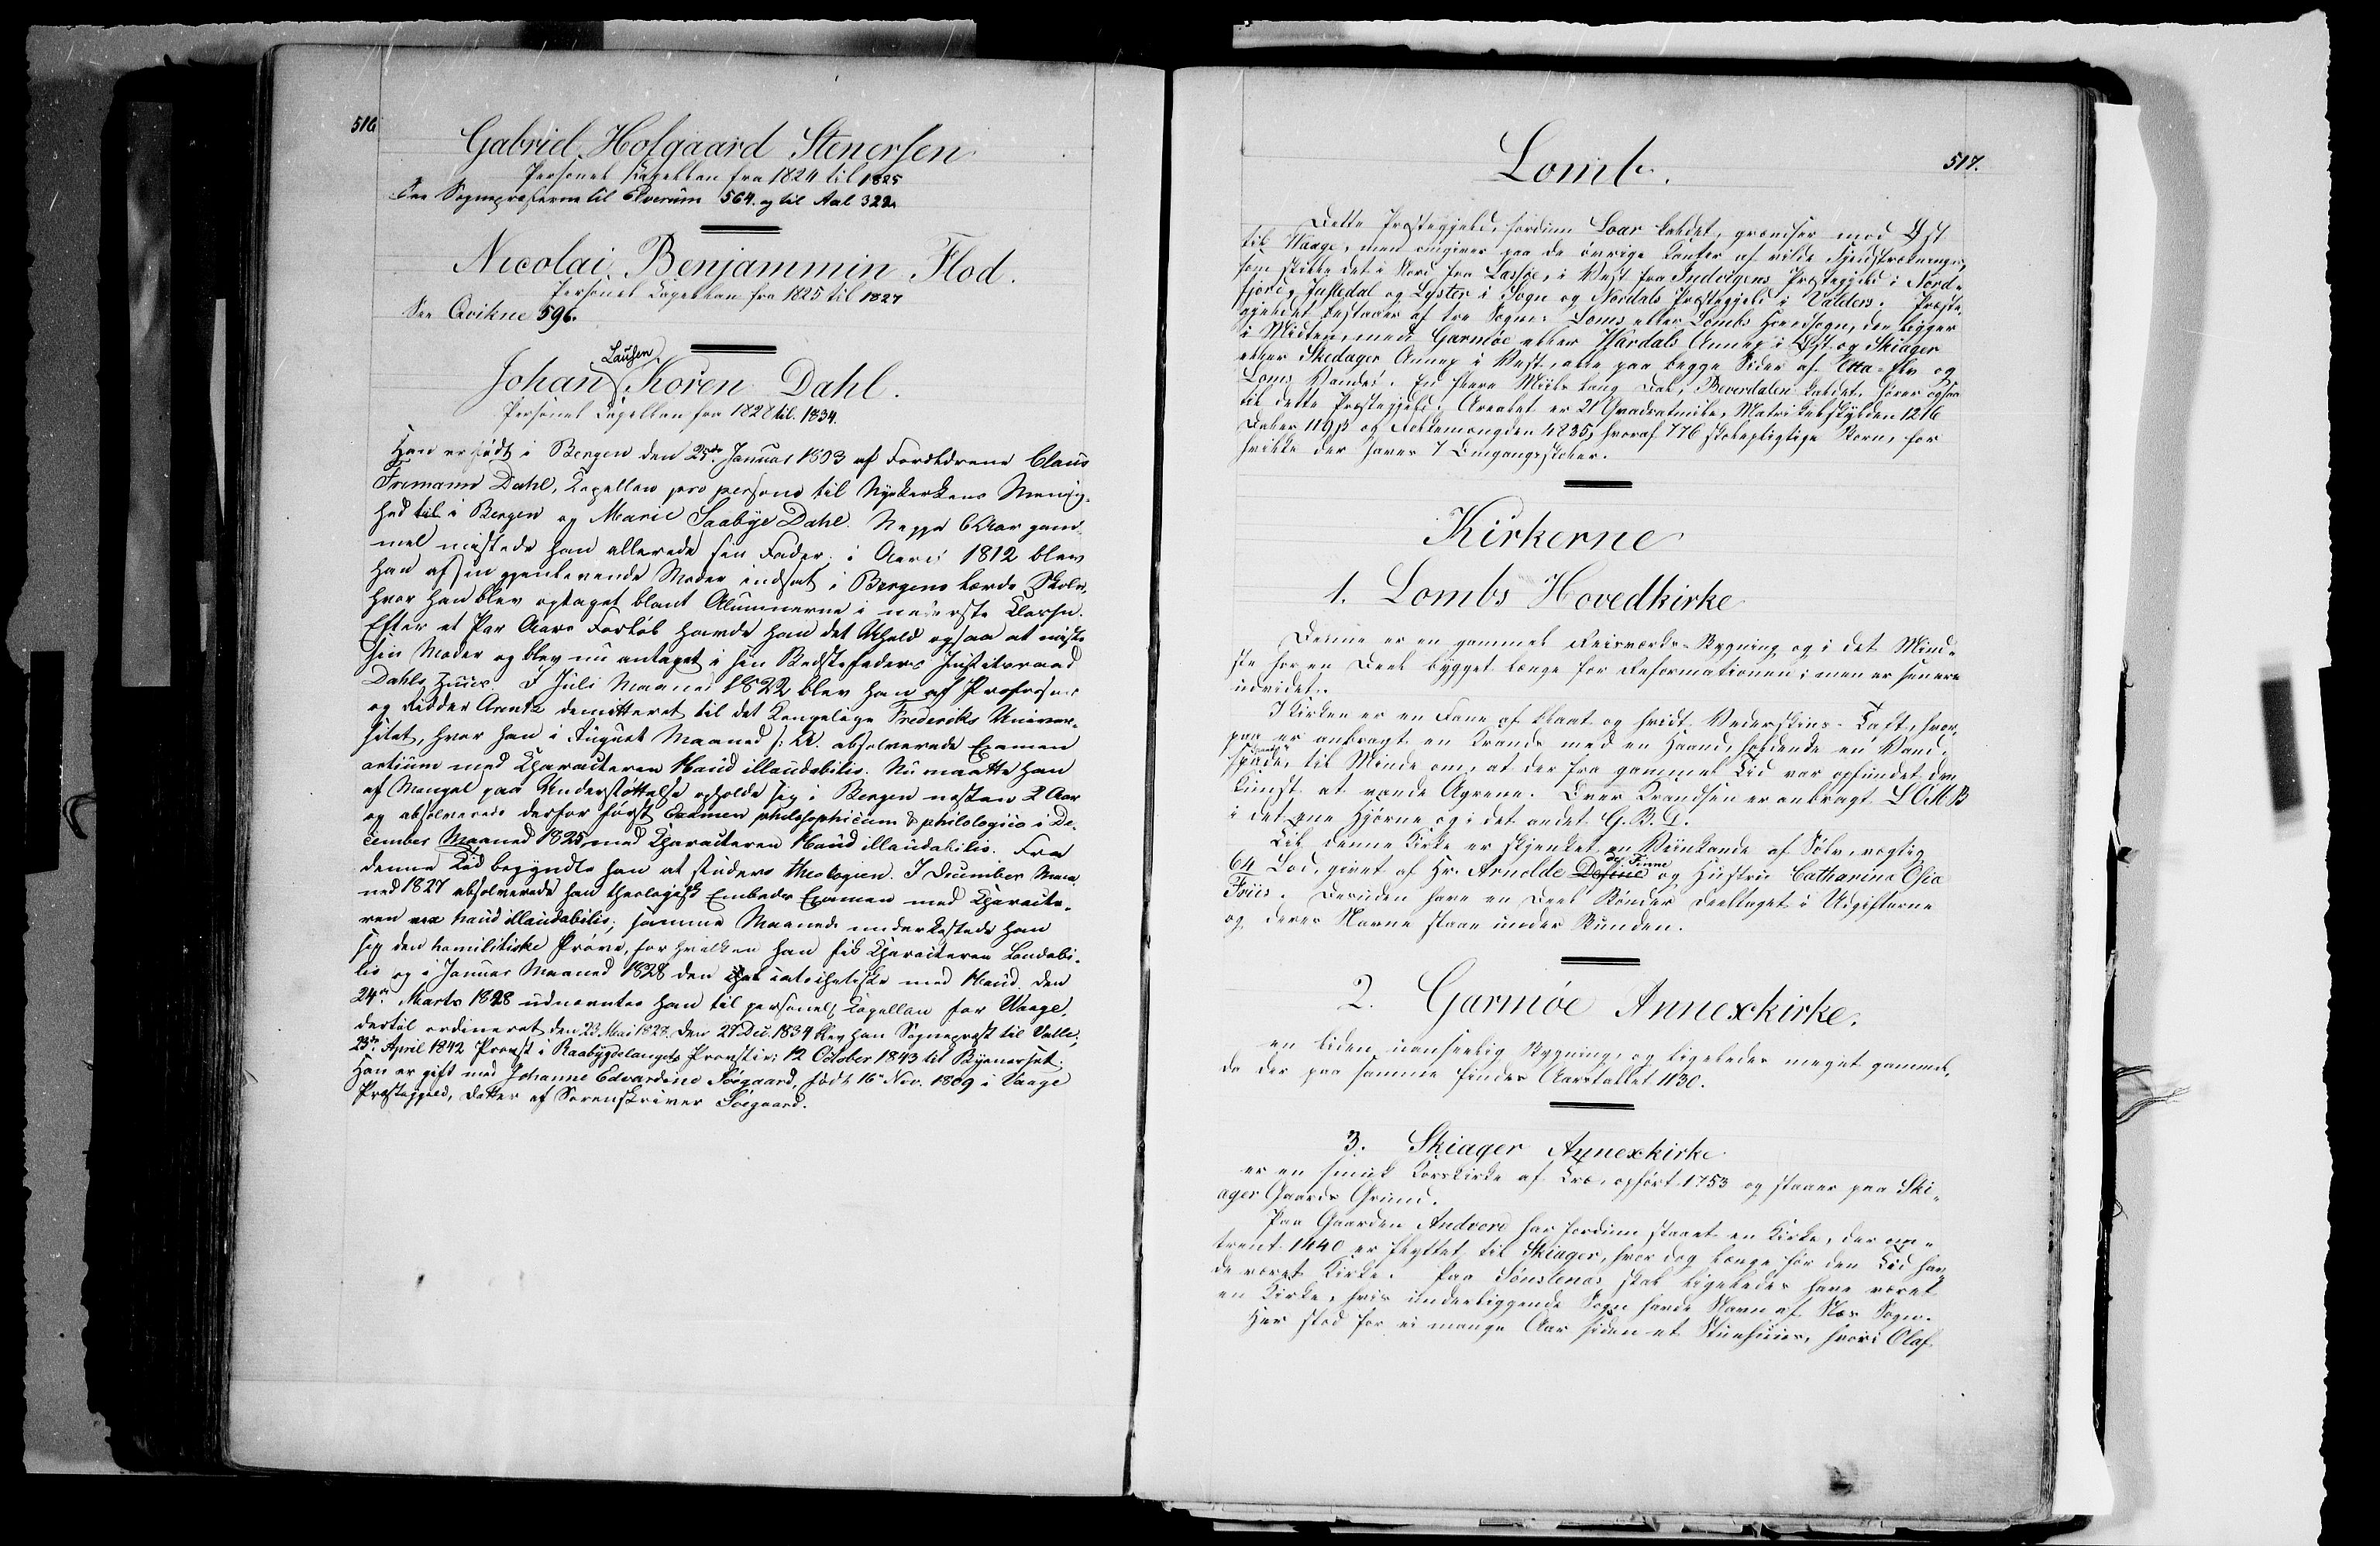 516
Gabriel Hofgaard Stenersen
Personel Kapellan fra 1824 til 1825
See Sognepræsterne til Elverum 564. og til Aal 322.
Nicolai Benjammin Flod.
Personel Kapellan fra 1825 til 1827
See Qvikne 596.
Lausen
Johan Koren Dahl.
Personel Kapellan fra 1828 til 1834.
Han er født i Bergen den 25de Januar 1803 af Forældrene Claus
Frimann Dahl, Kapellan pro persona til Nykirkens Menig-
hed til i Bergen og Marie Saabye Dahl. Neppe 6 Aar gam-
mel mistede han allerede sin Fader; i Aaret 1812 blev
han af sin gjenlevende Moder indsat i Bergens lærde Skole,
hvor han blev optaget blant Alumnerne i nederste Classe.
Efter et Par Aars Forløb havde han det Uheld ogsaa at miste
sin Moder og blev nu antaget i sin Bedstefaders Justitsraad
Dahls Huus. I Juli Maaned 1822 blev han af Professor
og Ridder Arentz demitteret til det Kongelige Frederiks Univer-
sitet, hvor han i August Maaned s: A. absolverede Examen
artium med Characteren Haud illaudabilis. Nu maatte han
af Mangel paa Understøttelse opholde sig i Bergen næsten 2 Aar
og absolverede derfor først Examen philosophicum & philologico i De-
cember Maaned 1825 med Characteren Haud illaudabilis. Fra
denne Tid begyndte han at studere theologien. I December Maa-
ned 1827 absolverede han theologisk Embeds Examen med Characte-
ren haud illaudabilis; samme Maaned underkastede han
sig den homilitiske Prøve, for hvilken han fik Characteren Laudabi-
lis og i Januar Maaned 1828 den catechetiske med Haud. Den
24de Marts 1828 udnævntes han til personel Kapellan for Waage,
dertil ordineret den 23 Mai 1828. den 27 Dec. 1834 blev han Sognepræst til Valle,
23de April 1842 Provst i Raabygdelagets Provstie; 12 October 1843 til Bynæsset.
Han er gift med Johanne Edvardine Söegaard, født 16 Nov. 1809 i Vaage
Præstegjeld, datter af Sorenskriver Söegaard.
517.
Lomb.
Dette Præstegjeld, fordum Loar kaldet, grændser mod Øst
til Waage, men omgives paa de øvrige Kanter af vilde Fjeldstrækninger,
som skille det i Nord fra Lassøe, i Vest fra Indvigens Præstegjeld i Nord-
fjord, Justedal og Lyster i Sogn og Nordals Præstegjeld i Valders. Præste-
gjeldet bestaaer af tre Sogne: Loms eller Lombs Hovedsogn, der ligger
i Midten, med Garmöe eller Wardals Annex i Øst og Skiager
eller Skedager Annex i Vest, alle paa begge Sider af Otta-Elv og
Loms Vandet. En flere Miile lang Dal, Beverdalen kaldet, hører ogsaa
til dette Præstegjeld. Arealet er 21 Qvadratmile, Matrikelskylden 1216
Daler 11 ß og Folkemængden 4835, hvoraf 776 skolepligtige Børn, for
hvilke der haves 7 Omgangsskoler.
Kirkerne
1. Lombs Hovedkirke
Denne er en gammel Reisværks-Bygning og i det Mind-
ste for en Deel bygget længe før Reformationen; men er senere
udvidet.
I Kirken er en Fane af blaat og hvidt Vederskins-Taft, hvor-
paa er anbragt en Krands med en Haand, holdende en Vand-
spade, til Minde om, at der fra gammel Tid var opfundet den
Kunst at vande Agrene. Over Krandsen er anbragt L O M B
i det ene Hjørne og i det andet G. B. D.
Til denne Kirke er skjenket en Viinkande af Sølv, vægtig
64 Lod, givet af Hr. Arnoldt de Finne og Hustru Catharina Osia
Friis. Desuden have en Deel Bønder deeltaget i Udgifterne
og deres Navne staae under Bunden.
2. Garmöe Annexkirke.
en liden uanseelig Bygning, og ligeledes meget gammel,
da der paa samme findes Aarstallet 1130.
3. Skiager Annexkirke
er en smuk Korskirke af Træ, opført 1753 og staaer paa Ski-
ager Gaards Grund.
Paa Gaarden Andvord har fordum staaet en Kirke, der om-
trent 1440 er flyttet til Skiager, hvor dog længe før den Tid hav-
de været Kirke. Paa Sønstenæs skal ligeledes have været
en Kirke, hvis underliggende Sogn havde Navn af Næs Sogn.
Her stod for ei mange Aar siden et Stuehuus, hvori Olaf